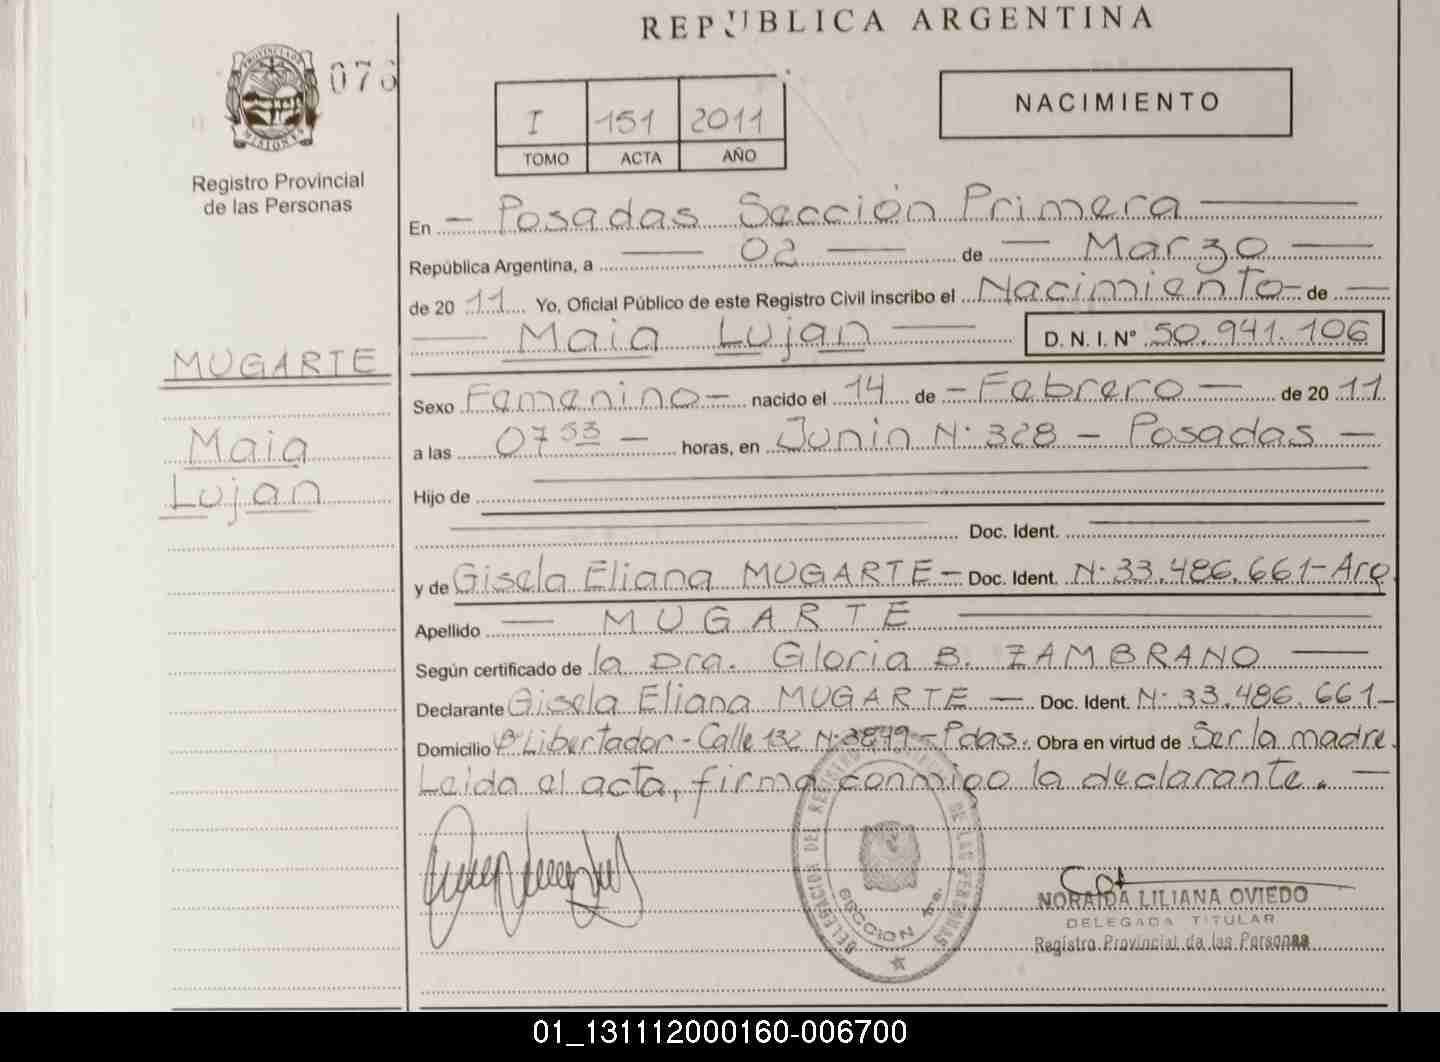 REPUBLICA ARGENTINA
PROVINCIA DE
MISIONES
076
Registro Provincial
de las Personas
I 151 2011
TOMO ACTA AÑO
NACIMIENTO
En - Posadas Sección Primera
República Argentina, a 02 de Marzo
de 2011 Yo, Oficial Público de este Registro Civil inscribo el Nacimiento de
Maia Lujan D. N. I. Nº 50.941.106
MUGARTE
Maia
Lujan
Sexo Femenino nacido el 14 de - Febrero - de 2011
a las 07 53 - horas, en Junin N· 328 - Posadas -
Hijo de
Doc. Ident.
y de Gisela Eliana MUGARTE - Doc. Ident. N· 33.486.661-Arg
Apellido MUGARTE
Según certificado de la Dra. Gloria B. ZAMBRANO
Declarante Gisela Eliana MUGARTE - Doc. Ident. N· 33.486.661-
Domicilio Bº Libertador - Calle 132 N· 3849 - Pdas. Obra en virtud de Ser la madre.
Leida el acta, firma conmigo la declarante. -
DELEGACION DEL REGISTRO DE LAS PERSONAS
SECCION 1ra.
NORAIDA LILIANA OVIEDO
DELEGADA TITULAR
Registro Provincial de las Personas
01_131112000160-006700